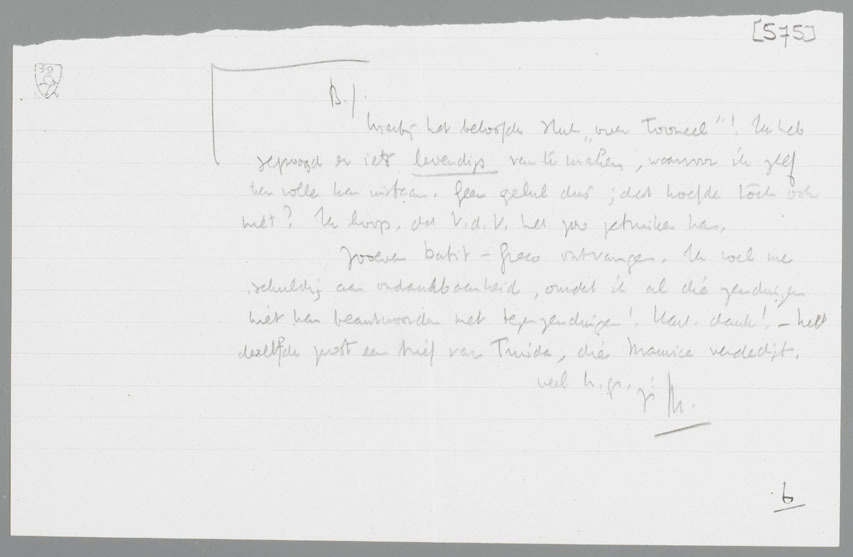 [575]
B./.
Hierbij het beloofde stuk „over Tooneel"! Ik heb
gepoogd er iets levendigs van te maken, waarvoor ik zelf
ten volle kan instaan. Geen gelul dus; dat hoefde tòch ook
niet? Ik hoop, dat V.d.V. het zoo gebruiken kan.
Zooeven Batist - Greco ontvangen. Ik voel me
schuldig aan ondankbaarheid, omdat ik al die zendingen
niet kan beantwoorden met tegenzendingen! Hart. dank! -
dezelfde post een brief van Truida, die Maurice verdedigt.
veel h.gr.
M.
6